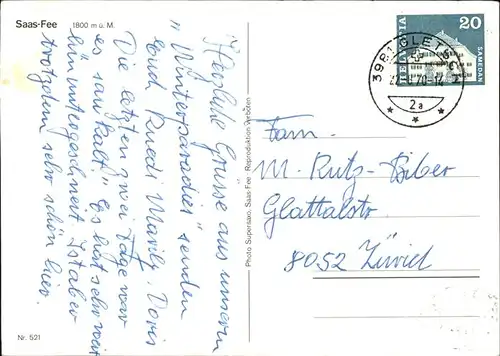 Saas-Fee 1800 m ü. M.
Herzliche Grüsse aus unserm
"Winterparadies" senden
Euch Ruedi Marily. Doris
Die letzten zwei Tage war
es saukalt" Es hat sehr weit
hinuntergeschneit Ist aber
trotzdem sehr schön hier.
Nr. 521
Photo Supersaxo, Saas-Fee Reproduktion verboten
HELVETIA
20
SAMEDAN
3981 GLETSCH
70-14
2a
Fam.
M. Rutz-Biber
Glattalstr.
8052 Zürich